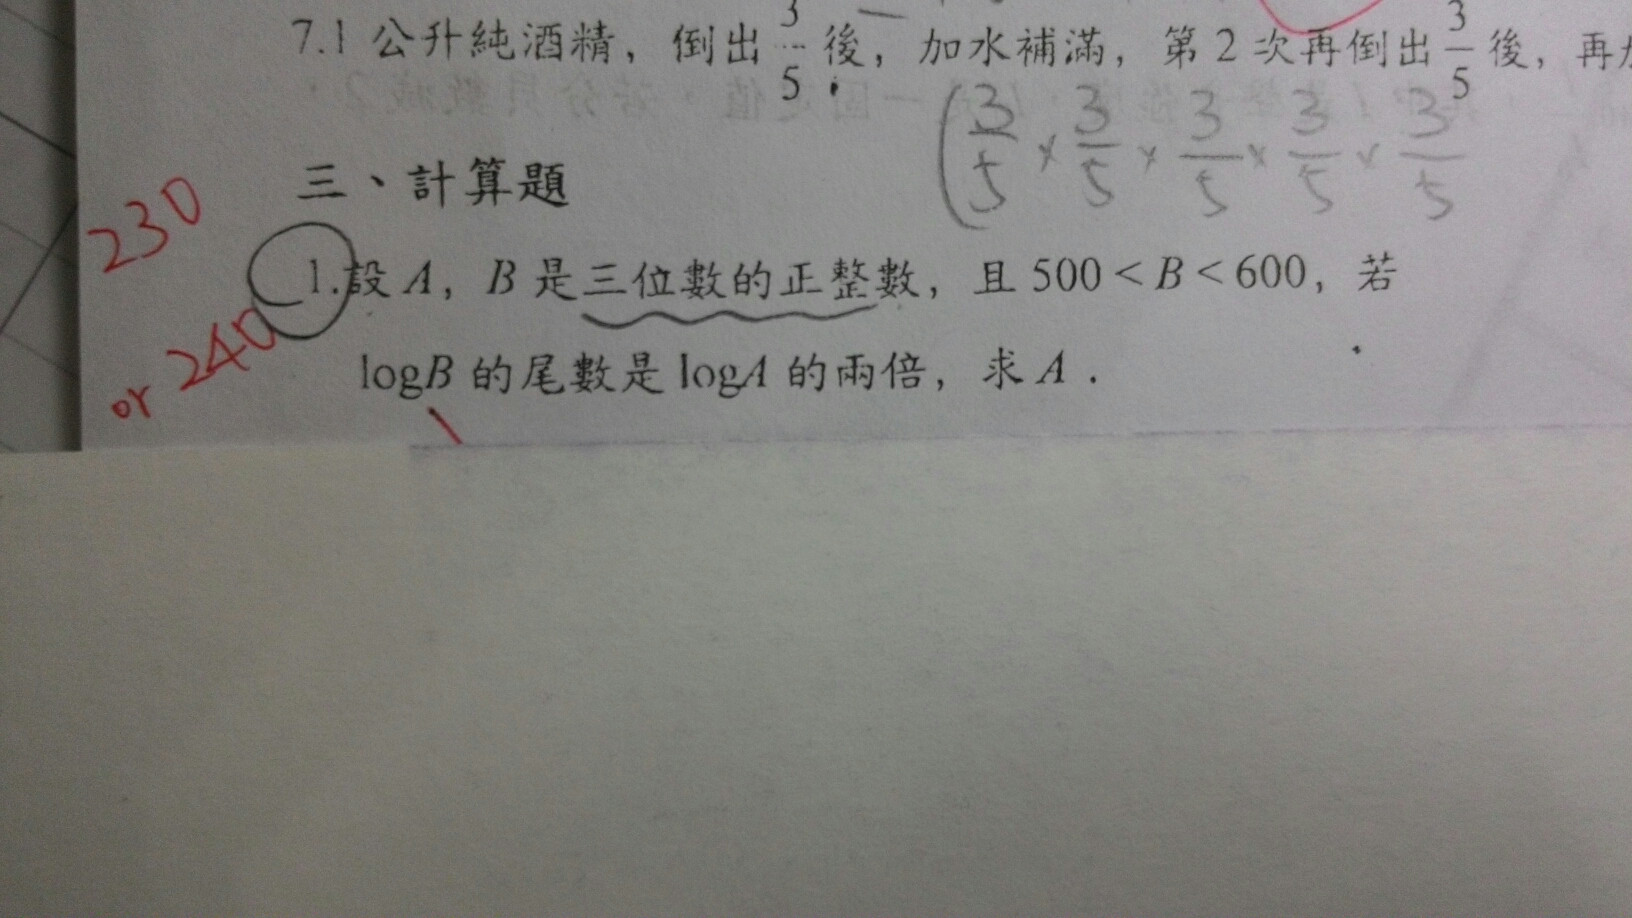 7.1 公升純酒精，倒出 3/5 後，加水補滿，第 2 次再倒出 3/5 後，再
(3/5 × 3/5 × 3/5 × 3/5 × 3/5
三、計算題
230
1.設 A，B 是三位數的正整數，且 500 < B < 600，若
or 240
logB 的尾數是 logA 的兩倍，求 A．